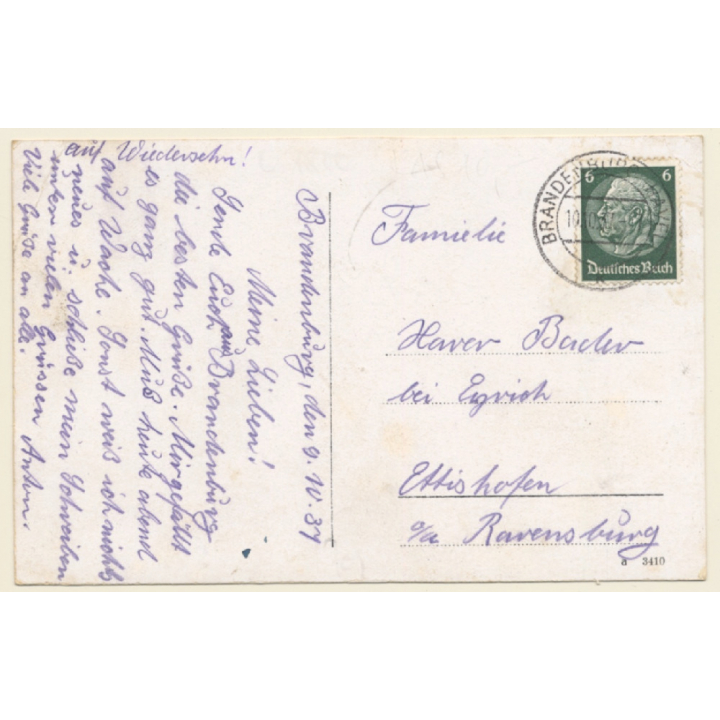 Brandenburg, den 9.10.37
Meine Lieben!
Sende Euch aus Brandenburg
die besten Grüße. Mir gefällt
es ganz gut. Muß heute abend
auf Wache. Sonst weiß ich nichts
neues u. schließe mein Schreiben
unter vielen Grüssen Anton.
Viele Grüße an alle.
auf Wiedersehn!
Familie
Xaver Bader
bei Eyrich
Ettishofen
o/a Ravensburg
BRANDENBURG
6 6
Deutsches Reich
a 3410